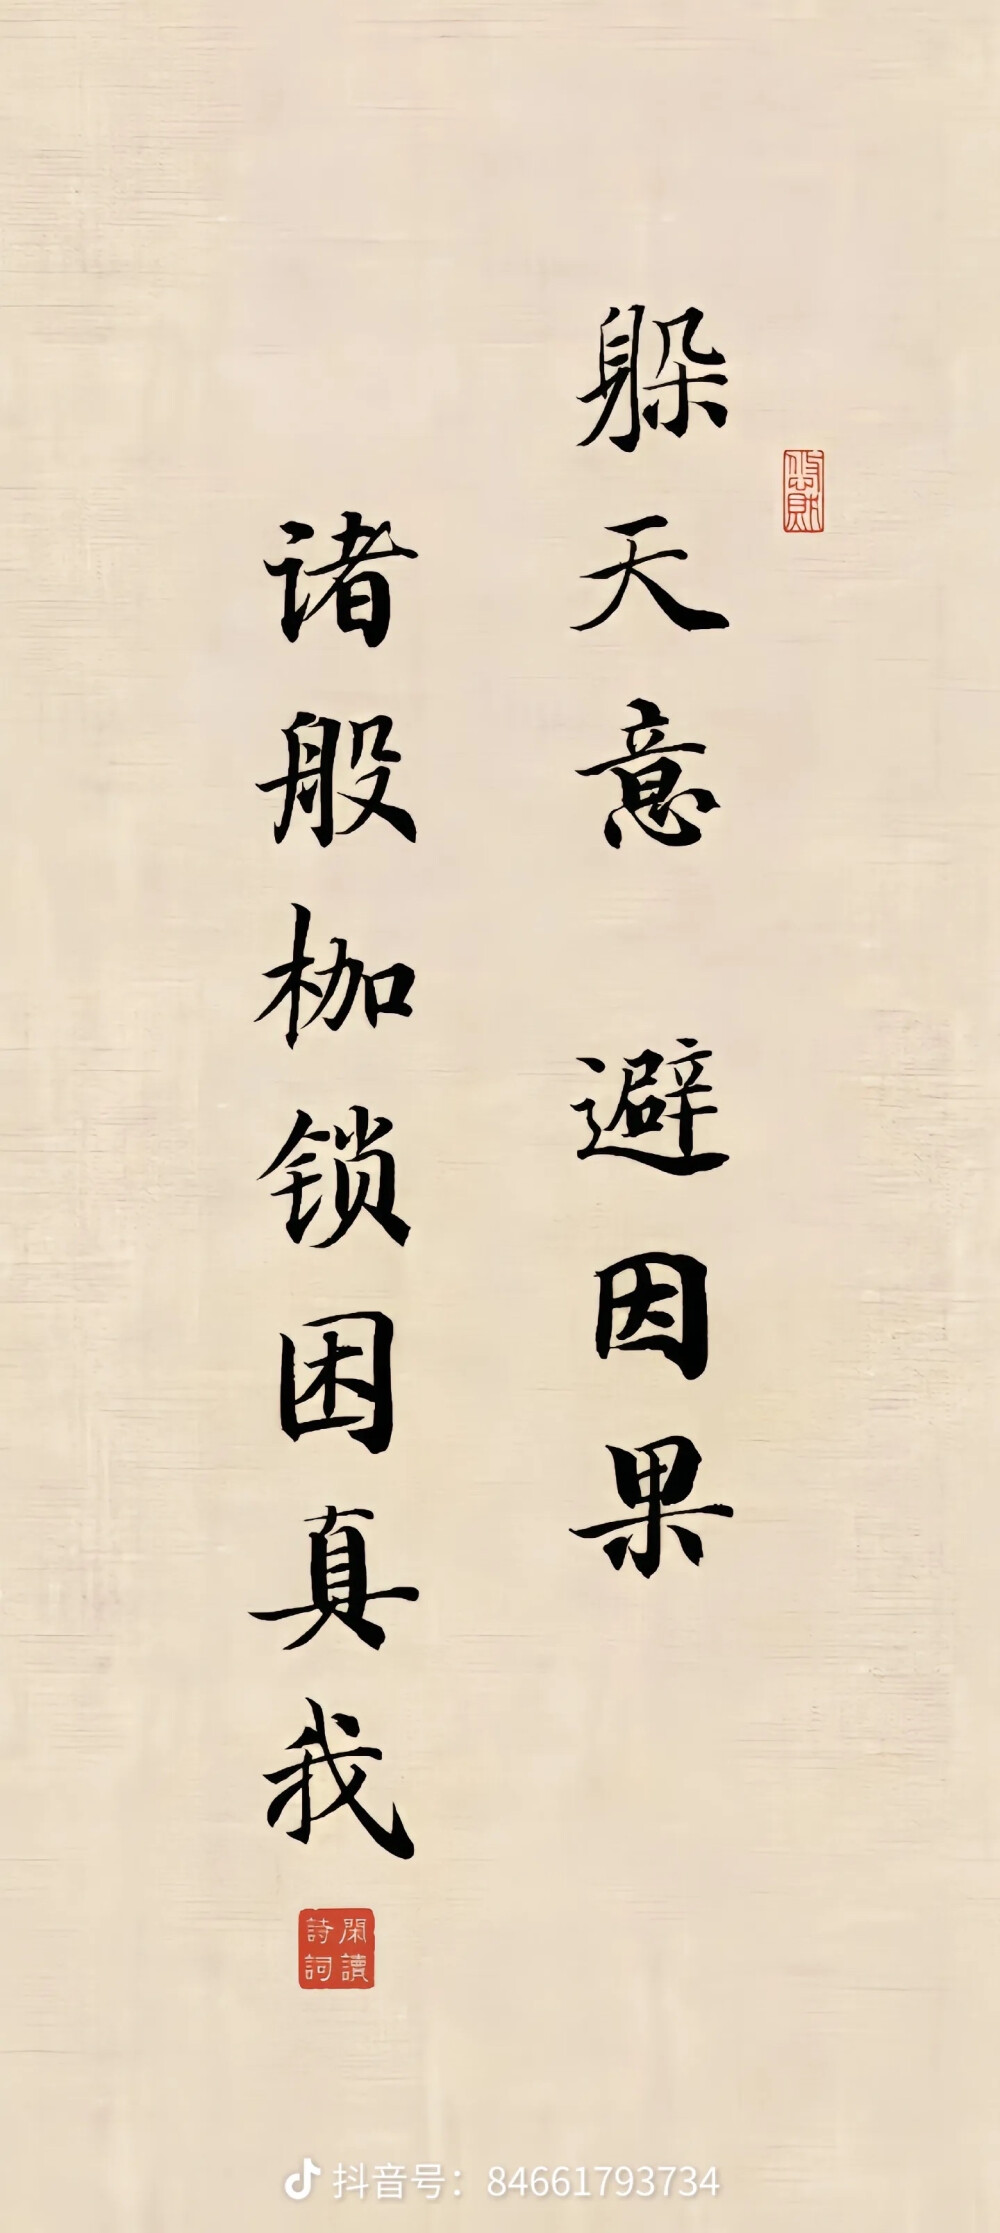 躲天意 避因果
诸般枷锁困真我
閑讀
詩詞
抖音号：84661793734